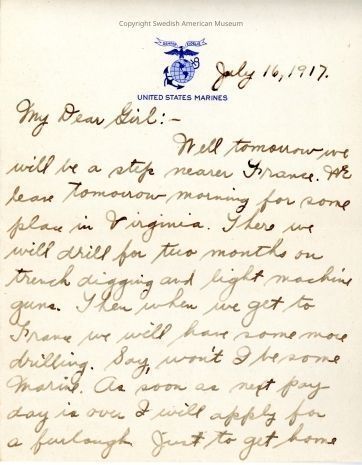 Copyright Swedish American Museum
SEMPER FIDELIS
July 16, 1917.
UNITED STATES MARINES
My Dear Girl:-
Well tomorrow we
will be a step nearer France. We
leave tomorrow morning for some
place in Virginia. There we
will drill for two months on
trench digging and light machine
guns. Then when we get to
France we will have some more
drilling. Say, won't I be some
Marine. As soon as next pay
day is over I will apply for
a furlough. Just to get home